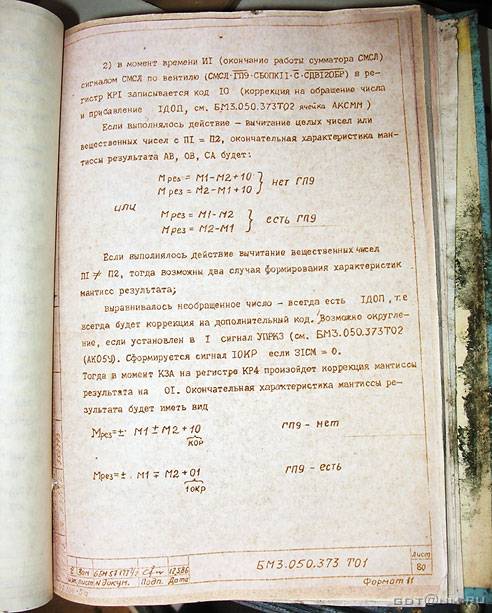 2) в момент времени ИI (окончание работы сумматора СМСЛ)
сигналом СМСЛ по вентилю (СМСЛ·ГП9·СБОПКII·С·СДВI2ОБР) в ре-
гистр КРI записывается код IO (коррекция на обращение числа
и прибавление IДОП, см. БМ3.050.373ТО2 ячейка АКСММ)
Если выполнялось действие – вычитание целых чисел или
вещественных чисел с ПI = П2, окончательная характеристика ман-
тиссы результата АВ, ОВ, СА будет:
Мрез = М1-М2+10
Мрез = М2-М1+10 } нет ГП9
или
Мрез = М1-М2
Мрез = М2-М1 } есть ГП9
Если выполнялось действие вычитание вещественных чисел
ПI ≠ П2, тогда возможны два случая формирования характеристик
мантисс результата;
Выравнивалось необращенное число – всегда есть IДОП, т.е
всегда будет коррекция на дополнительный код. Возможно округле-
ние, если установлен в I сигнал УПРКЗ (см. БМ3.050.373ТО2
(АКО5У). Сформируется сигнал IОКР если ЗIСМ = 0.
Тогда в момент КЗА на регистре КР4 произойдет коррекция мантиссы
результата на OI. Окончательная характеристика мантиссы ре-
зультата будет иметь вид
Мрез=± М1 ± М2 + 10 ГП9 – нет
кор
Мрез=± М1 ∓ М2 + 01 ГП9 – есть
1окр
Зам
Изм. Лист. N докум. Подп. Дата
БМ3.050.373 ТО1
Лист
80
Формат 11